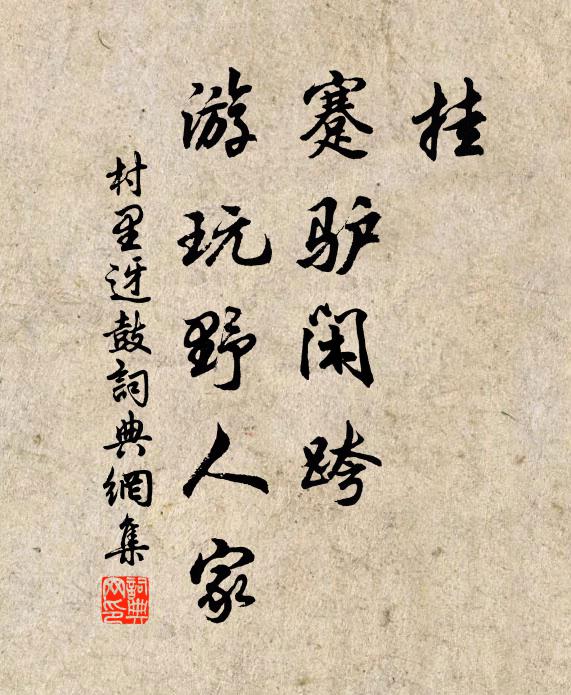 挂
蹇驴闲跨
游玩野人家
村里迓鼓詞典網集
詞典网印